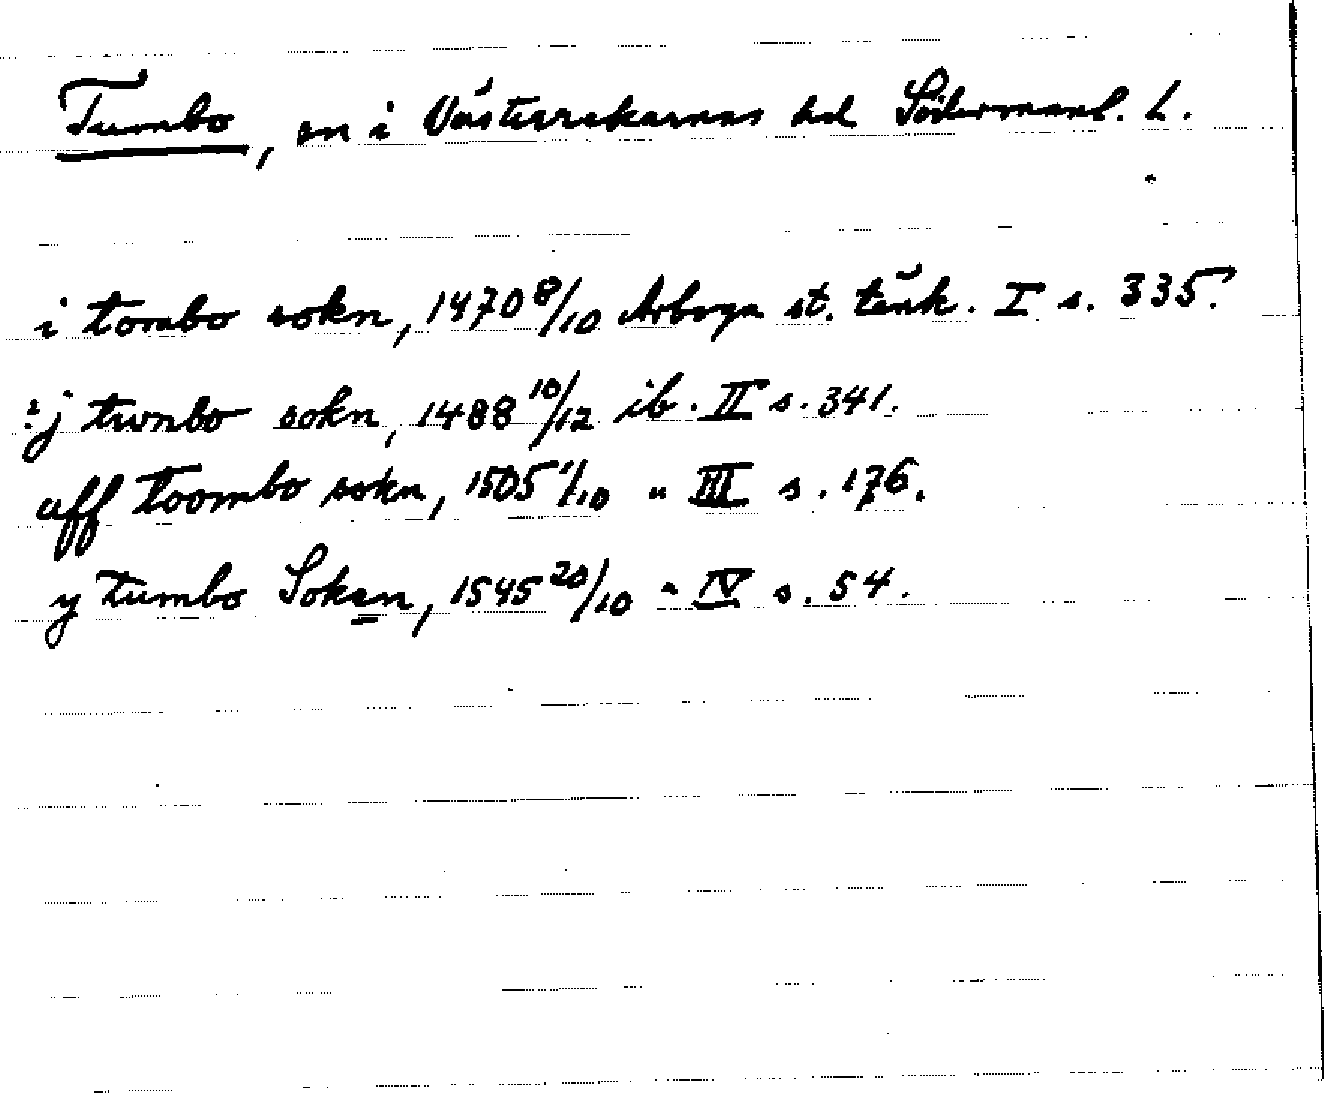 Tumbo, sn i Västerrekarnas hd Södermanl. L.
i tombo sokn, 1470 8/10 Arboga st. tänk. I s. 335.
j twnbo sokn, 1488 10/12 ib. II s. 341.
aff toombo sokn, 1505 1/10 " III s. 176.
y tumbo Soken, 1545 20/10 " IV s. 54.